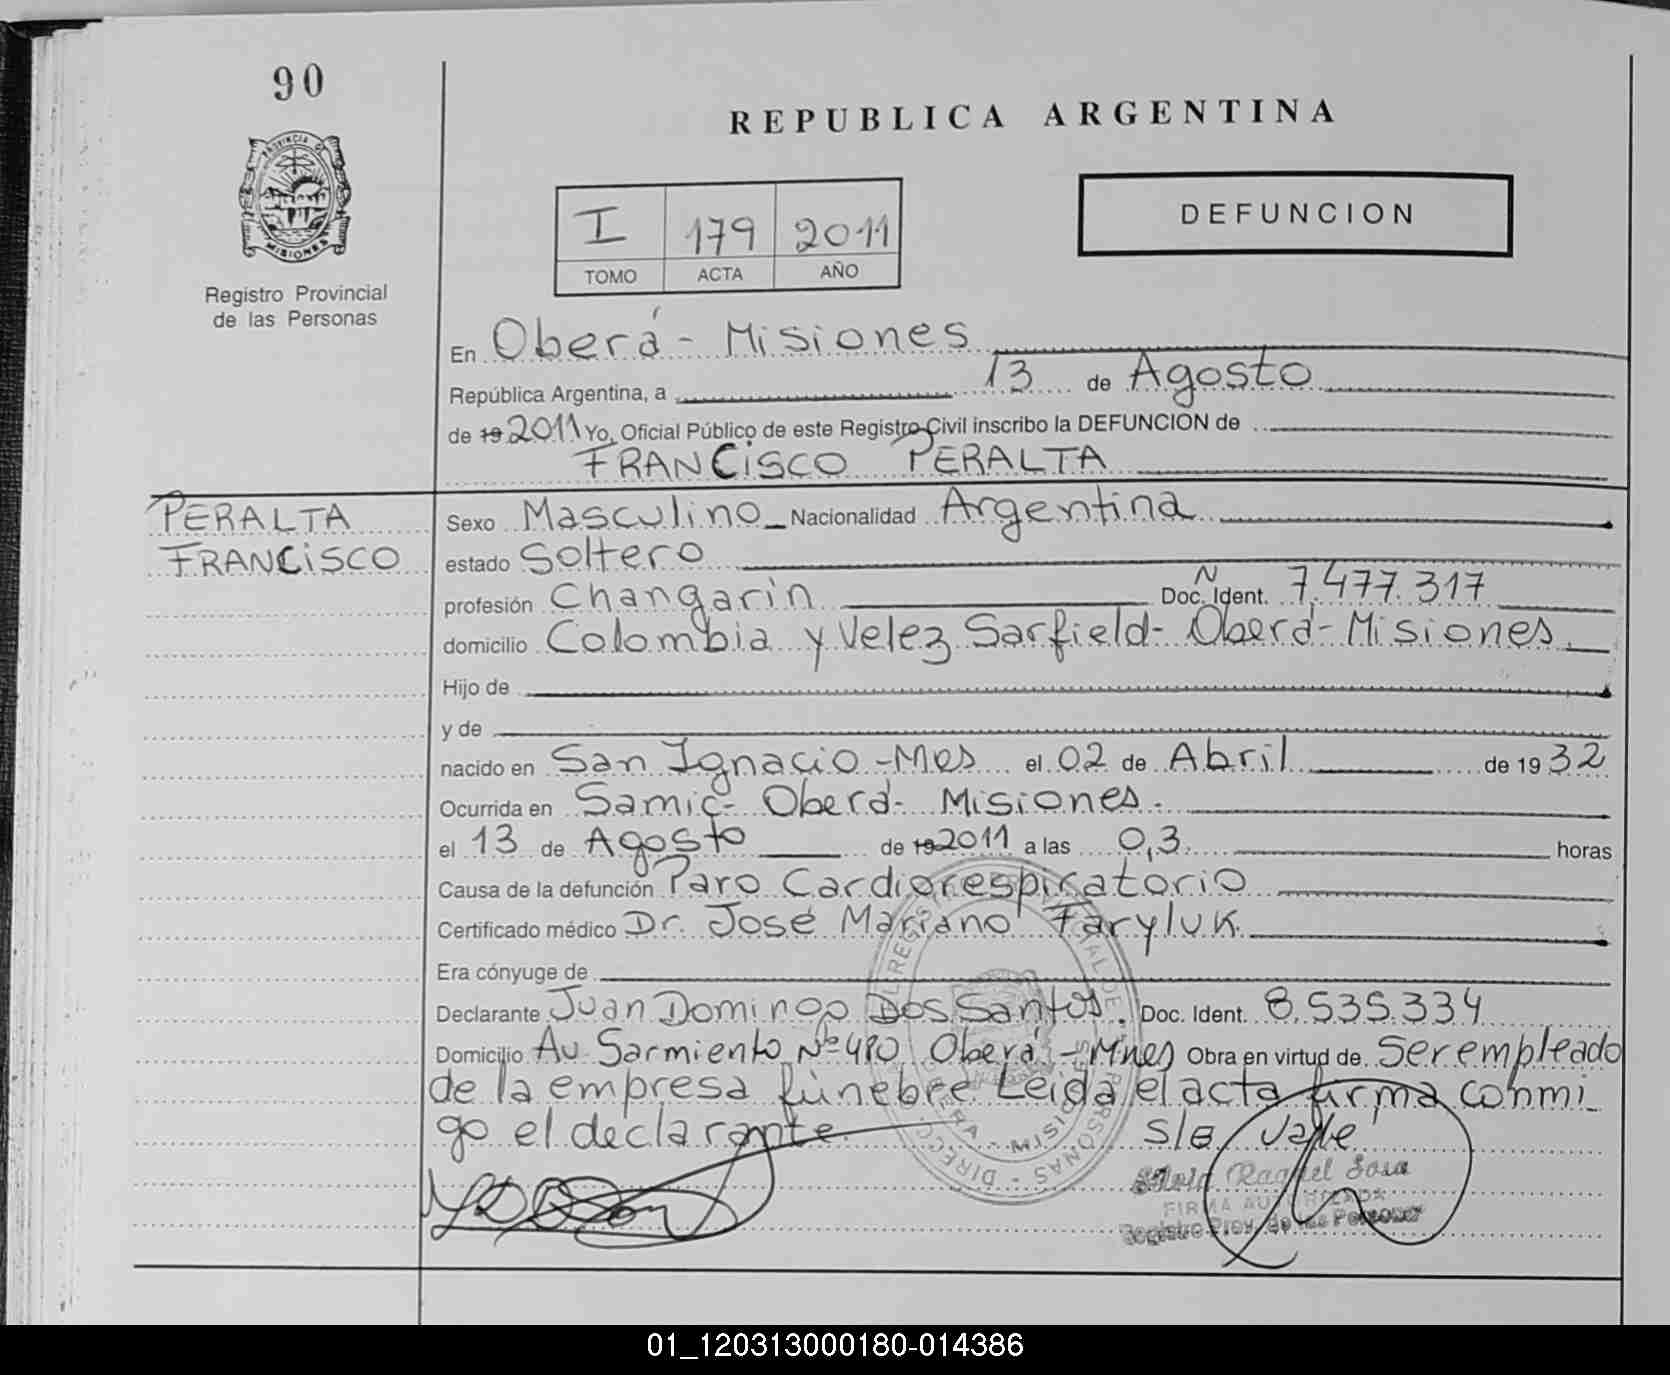 90
PROVINCIA DE
MISIONES
Registro Provincial
de las Personas
REPUBLICA ARGENTINA
I 179 2011
TOMO ACTA AÑO
DEFUNCION
En Oberá - Misiones
República Argentina, a 13 de Agosto
de 19 2011 Yo, Oficial Público de este Registro Civil inscribo la DEFUNCION de
FRANCISCO PERALTA
PERALTA
FRANCISCO
Sexo Masculino Nacionalidad Argentina
estado Soltero
profesión Changarin Doc. N Ident. 7.477.317
domicilio Colombia y Velez Sarfield - Oberá - Misiones.
Hijo de
y de
nacido en San Ignacio - Mes el 02 de Abril de 1932
Ocurrida en Samic - Oberá - Misiones.
el 13 de Agosto de 19 2011 a las 0,3 horas
Causa de la defunción Paro Cardiorespiratorio
Certificado médico Dr. José Mariano Taryluk.
Era cónyuge de
Declarante Juan Domingo Dos Santos. Doc. Ident. 8.535.334
Domicilio Av Sarmiento Nº Oberá - Mnes Obra en virtud de Ser empleado
de la empresa fúnebre Leida el acta firma conmi
go el declarante S/B Vale
Raquel Sosa
FIRMA AUTORIZADA
Registro Prov. de las Personas
01_120313000180-014386